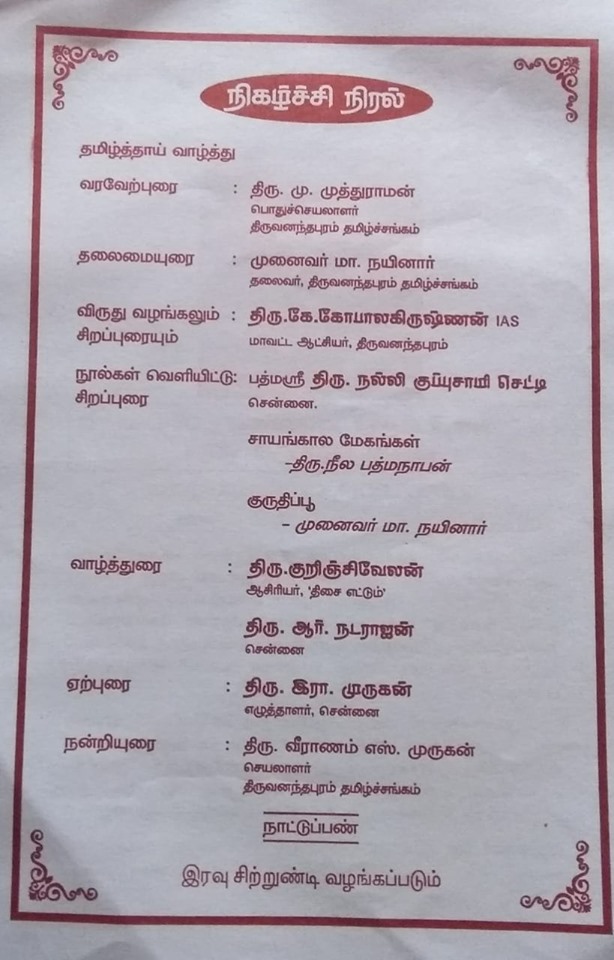 நிகழ்ச்சி நிரல்
தமிழ்த்தாய் வாழ்த்து
வரவேற்புரை : திரு. மு. முத்துராமன்
பொதுச்செயலாளர்
திருவனந்தபுரம் தமிழ்ச்சங்கம்
தலைமையுரை : முனைவர் மா. நயினார்
தலைவர், திருவனந்தபுரம் தமிழ்ச்சங்கம்
விருது வழங்கலும் : திரு.கே.கோபாலகிருஷ்ணன் IAS
சிறப்புரையும் மாவட்ட ஆட்சியர், திருவனந்தபுரம்
நூல்கள் வெளியிட்டு: பத்மஸ்ரீ திரு. நல்லி குப்புசாமி செட்டி
சிறப்புரை சென்னை.
சாயங்கால மேகங்கள்
-திரு.நீல பத்மநாபன்
குருதிப்பூ
- முனைவர் மா. நயினார்
வாழ்த்துரை : திரு.குறிஞ்சிவேலன்
ஆசிரியர், 'திசை எட்டும்'
திரு. ஆர். நடராஜன்
சென்னை
ஏற்புரை : திரு. இரா. முருகன்
எழுத்தாளர், சென்னை
நன்றியுரை : திரு. வீராணம் எஸ். முருகன்
செயலாளர்
திருவனந்தபுரம் தமிழ்ச்சங்கம்
நாட்டுப்பண்
இரவு சிற்றுண்டி வழங்கப்படும்